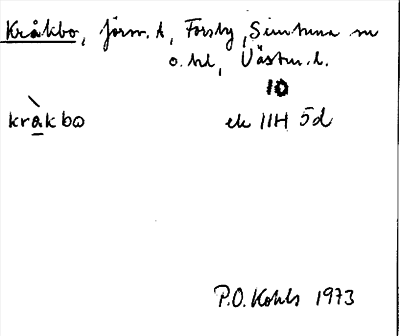 Kråkbo, förr. t, Forsby, Simtuna sn
o. hd, Västm. l.
10
kràkbo
ek 11H 5d
P.O. Kohls 1973